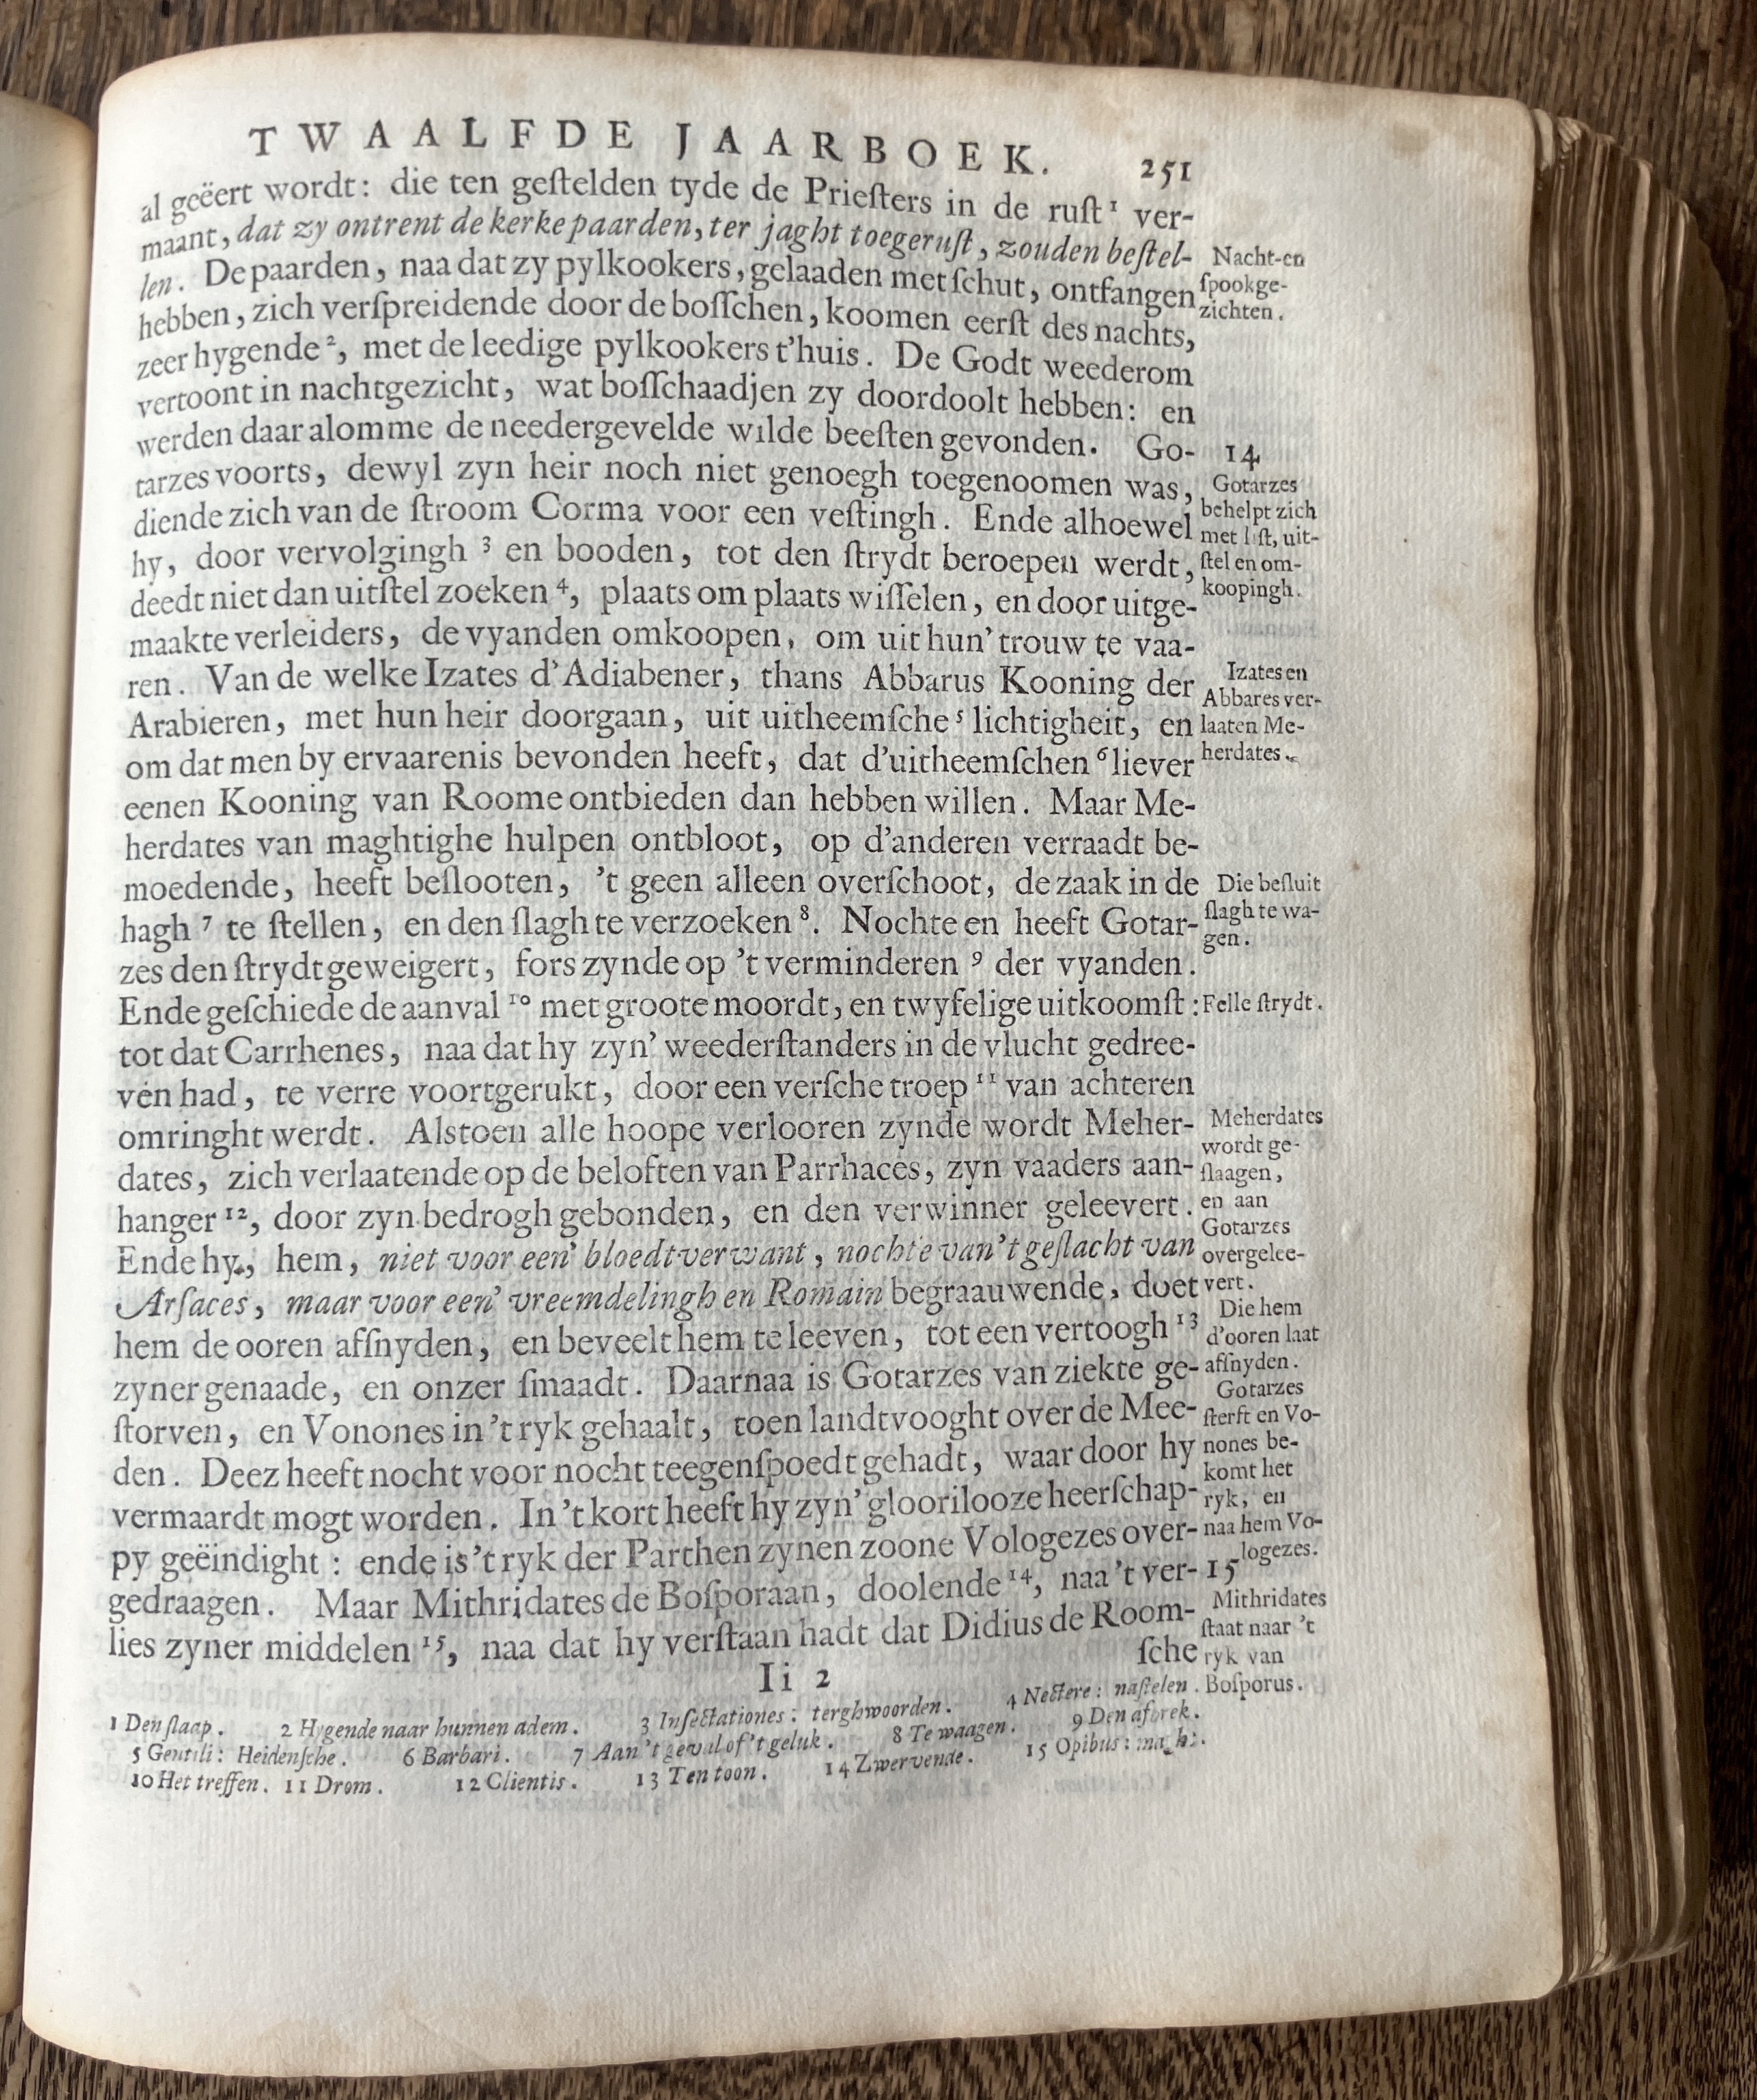 TWAALFDE JAARBOEK. 251
al geëert wordt: die ten geſtelden tyde de Prieſters in de ruſt¹ ver-
maant, dat zy ontrent de kerke paarden, ter jaght toegeruſt, zouden beſtel-
len. De paarden, naa dat zy pylkookers, gelaaden met ſchut, ontfangen
hebben, zich verſpreidende door de boſſchen, koomen eerſt des nachts,
zeer hygende², met de leedige pylkookers t'huis. De Godt weederom
vertoont in nachtgezicht, wat boſſchaadjen zy doordoolt hebben: en
werden daar alomme de needergevelde wilde beeſten gevonden. Go-
tarzes voorts, dewyl zyn heir noch niet genoegh toegenoomen was,
diende zich van de ſtroom Corma voor een veſtingh. Ende alhoewel
hy, door vervolgingh ³ en booden, tot den ſtrydt beroepen werdt,
deedt niet dan uitſtel zoeken⁴, plaats om plaats wiſſelen, en door uitge-
maakte verleiders, de vyanden omkoopen, om uit hun' trouw te vaa-
ren. Van de welke Izates d'Adiabener, thans Abbarus Kooning der
Arabieren, met hun heir doorgaan, uit uitheemſche⁵ lichtigheit, en
om dat men by ervaarenis bevonden heeft, dat d'uitheemſchen ⁶ liever
eenen Kooning van Roome ontbieden dan hebben willen. Maar Me-
herdates van maghtighe hulpen ontbloot, op d'anderen verraadt be-
moedende, heeft beſlooten, 't geen alleen overſchoot, de zaak in de
hagh ⁷ te ſtellen, en den ſlagh te verzoeken ⁸. Nochte en heeft Gotar-
zes den ſtrydt geweigert, fors zynde op 't verminderen ⁹ der vyanden.
Ende geſchiede de aanval ¹⁰ met groote moordt, en twyfelige uitkoomſt:
tot dat Carrhenes, naa dat hy zyn' weederſtanders in de vlucht gedree-
ven had, te verre voortgerukt, door een verſche troep ¹¹ van achteren
omringht werdt. Alstoen alle hoope verlooren zynde wordt Meher-
dates, zich verlaatende op de beloften van Parrhaces, zyn vaaders aan-
hanger ¹², door zyn bedrogh gebonden, en den verwinner geleevert.
Ende hy, hem, niet voor een' bloedtverwant, nochte van 't geſlacht van
Arſaces, maar voor een' vreemdelingh en Romain begraauwende, doet
hem de ooren afſnyden, en beveelt hem te leeven, tot een vertoogh ¹³
zyner genaade, en onzer ſmaadt. Daarnaa is Gotarzes van ziekte ge-
ſtorven, en Vonones in 't ryk gehaalt, toen landtvooght over de Mee-
den. Deez heeft nocht voor nocht teegenſpoedt gehadt, waar door hy
vermaardt mogt worden. In 't kort heeft hy zyn' gloorilooze heerſchap-
py geëindight: ende is 't ryk der Parthen zynen zoone Vologezes over-
gedraagen. Maar Mithridates de Boſporaan, doolende ¹⁴, naa 't ver-
lies zyner middelen ¹⁵, naa dat hy verſtaan hadt dat Didius de Room-
ſche
Ii 2
Nacht-en
ſpookge-
zichten.
14
Gotarzes
behelpt zich
met liſt, uit-
ſtel en om-
koopingh.
Izates en
Abbares ver-
laaten Me-
herdates.
Die beſluit
ſlagh te wa-
gen.
Felle ſtrydt.
Meherdates
wordt ge-
ſlaagen,
en aan
Gotarzes
overgelee-
vert.
Die hem
d'ooren laat
afſnyden.
Gotarzes
ſterft en Vo-
nones be-
komt het
ryk, en
naa hem Vo-
logezes.
15
Mithridates
ſtaat naar 't
ryk van
Boſporus.
1 Den ſlaap. 2 Hygende naar hunnen adem. 3 Inſectationes: terghwoorden. 4 Nectere: naſtelen.
5 Gentili: Heidenſche. 6 Barbari. 7 Aan 't geval of 't geluk. 8 Te waagen. 9 Den afbrek.
10 Het treffen. 11 Drom. 12 Clientis. 13 Ten toon. 14 Zwervende. 15 Opibus: